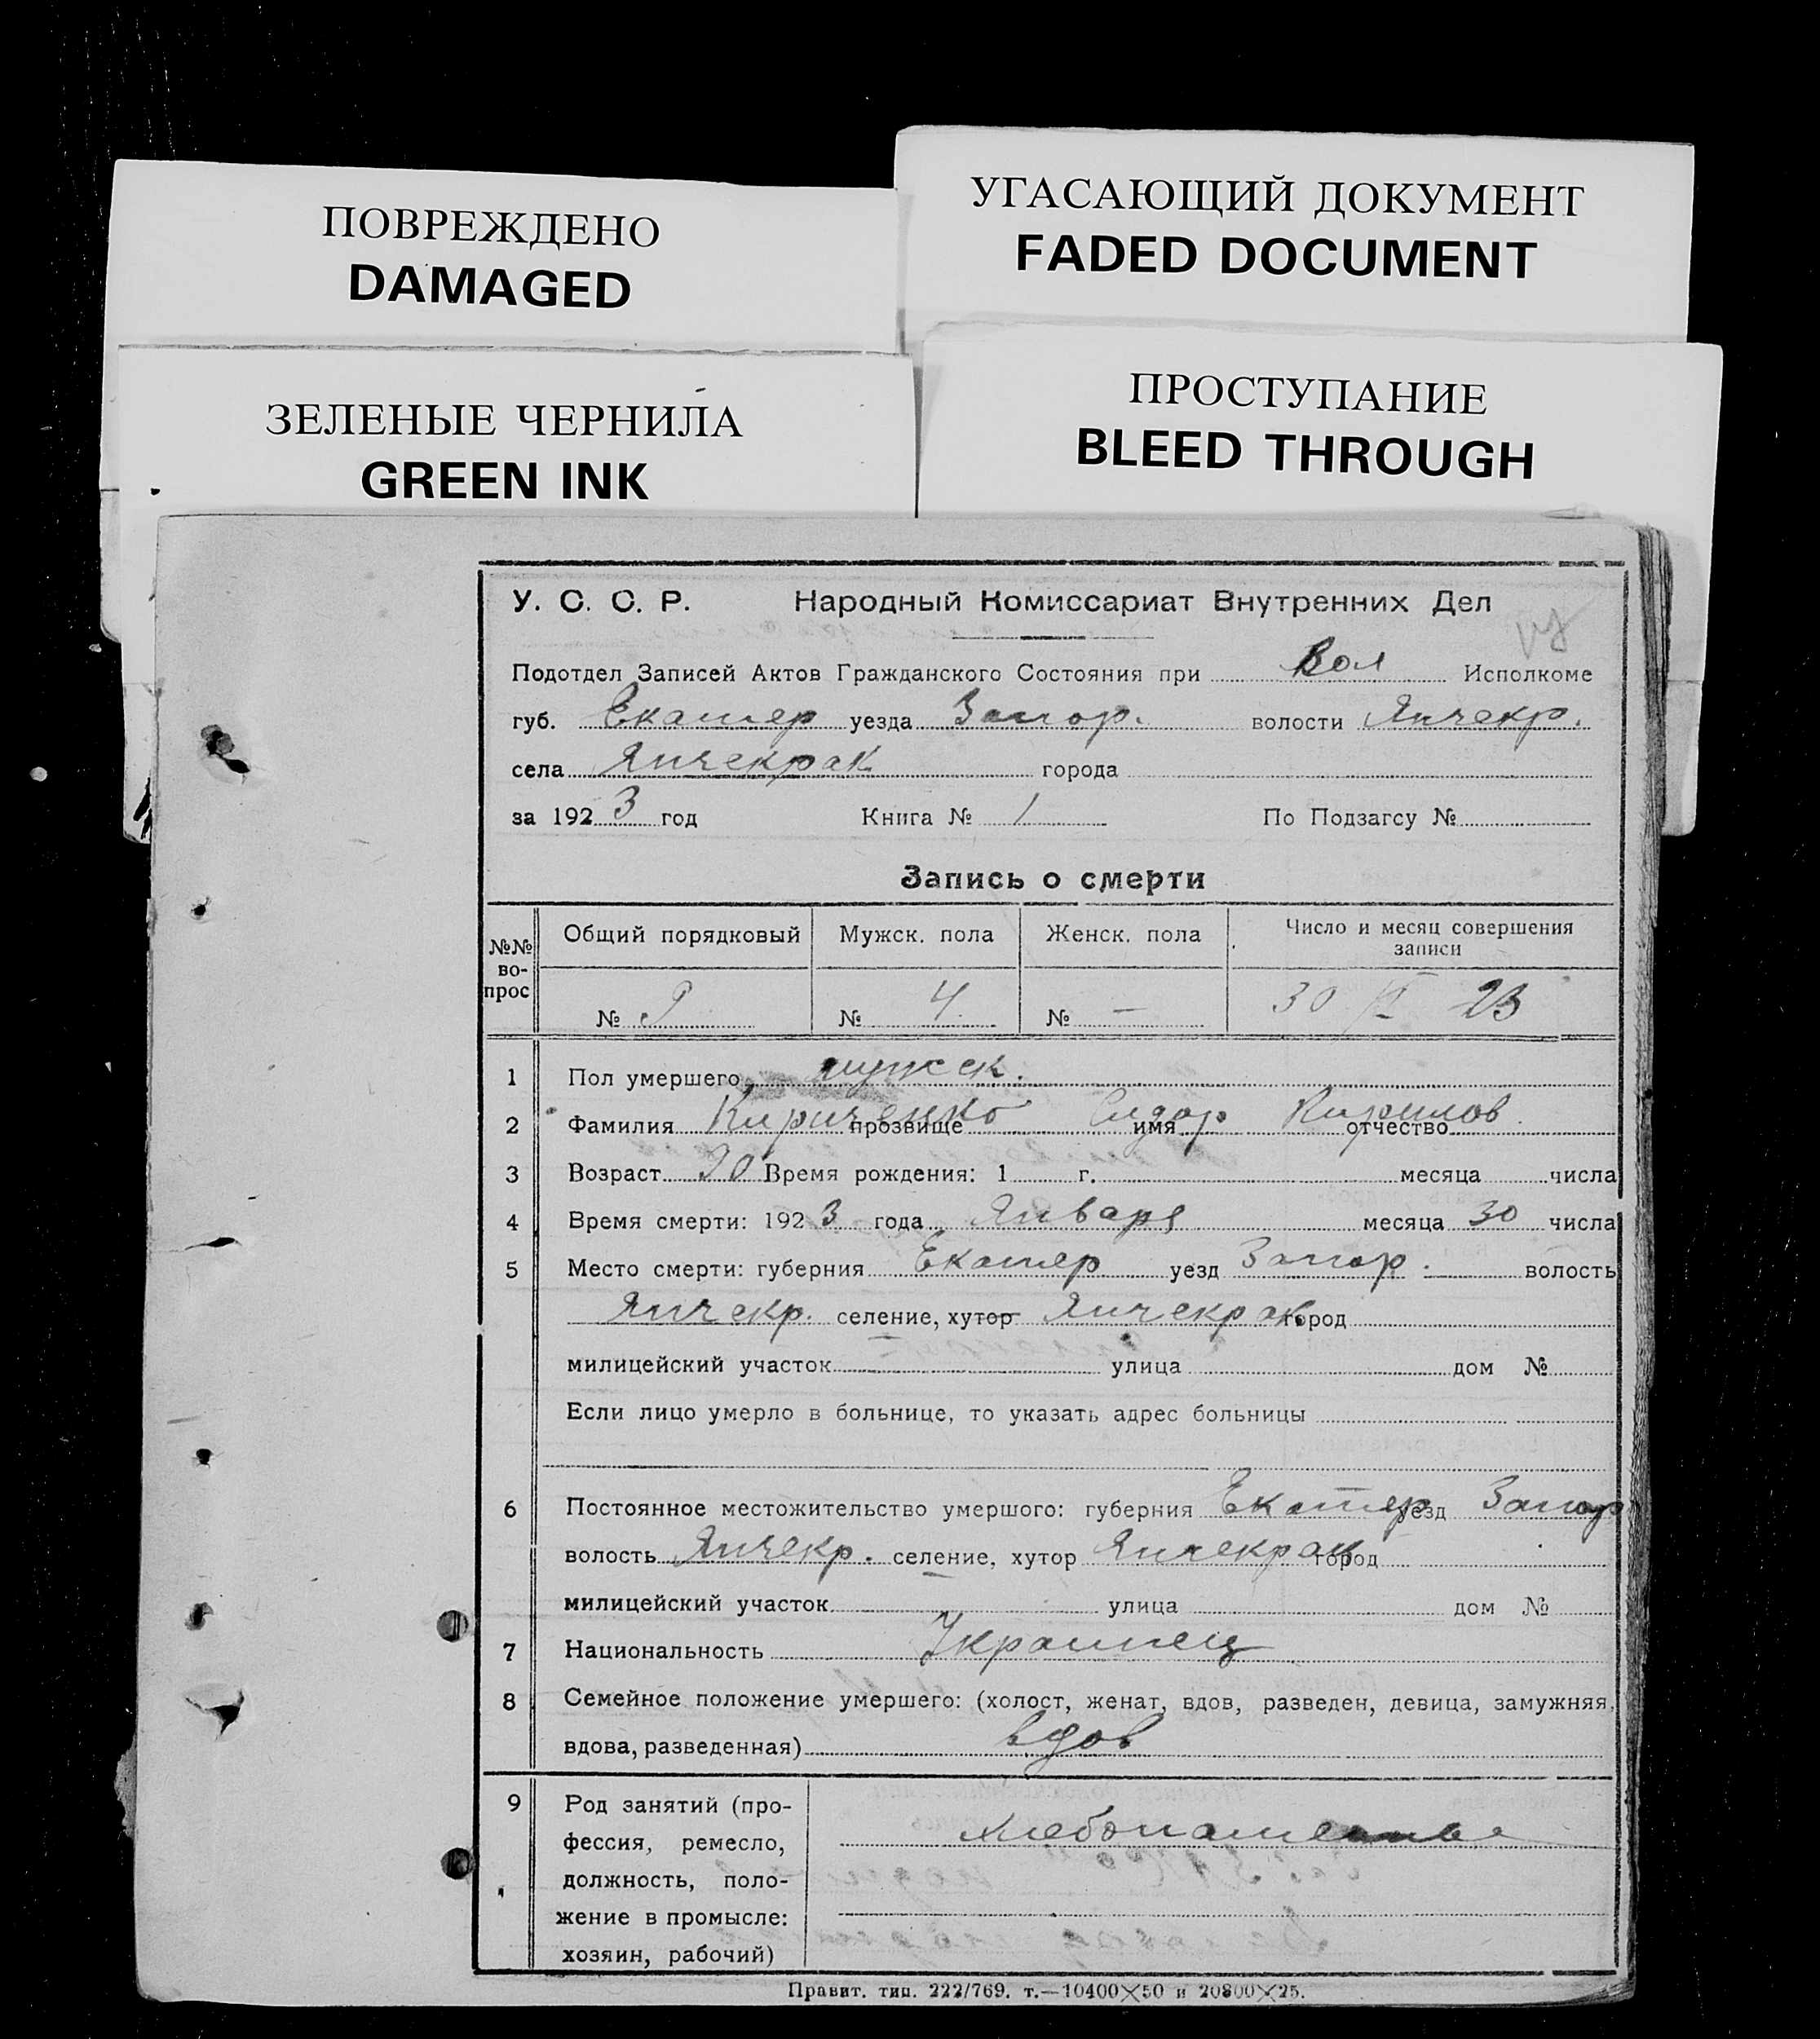 ПОВРЕЖДЕНО
DAMAGED
УГАСАЮЩИЙ ДОКУМЕНТ
FADED DOCUMENT
ЗЕЛЕНЫЕ ЧЕРНИЛА
GREEN INK
ПРОСТУПАНИЕ
BLEED THROUGH
У. С. С. Р. Народный Комиссариат Внутренних Дел
Подотдел Записей Актов Гражданского Состояния при Вол Исполкоме
губ. Екатер уезда Запор. волости Янчекр.
села Янчекрак города
за 1923 год Книга № 1 По Подзагсу №
Запись о смерти
№№ во-прос Общий порядковый Мужск. пола Женск. пола Число и месяц совершения записи
№ № 4 № — 30 I 23
1 Пол умершего мужск.
2 Фамилия Кириченко прозвище имя Сидор отчество Кирилов
3 Возраст Время рождения: 1 г. месяца числа
4 Время смерти: 1923 года Января месяца 30 числа
5 Место смерти: губерния Екатер уезд Запор. волость
Янчекр. селение, хутор Янчекрак город
милицейский участок улица дом №
Если лицо умерло в больнице, то указать адрес больницы
6 Постоянное местожительство умершого: губерния Екатер уезд Запор
волость Янчекр. селение, хутор Янчекрак город
милицейский участок улица дом №
7 Национальность Украинец
8 Семейное положение умершего: (холост, женат, вдов, разведен, девица, замужняя,
вдова, разведенная) вдов
9 Род занятий (про-
фессия, ремесло,
должность, поло-
жение в промысле:
хозяин, рабочий)
Правит. тип. 222/769. т.—10400×50 и 20800×25.